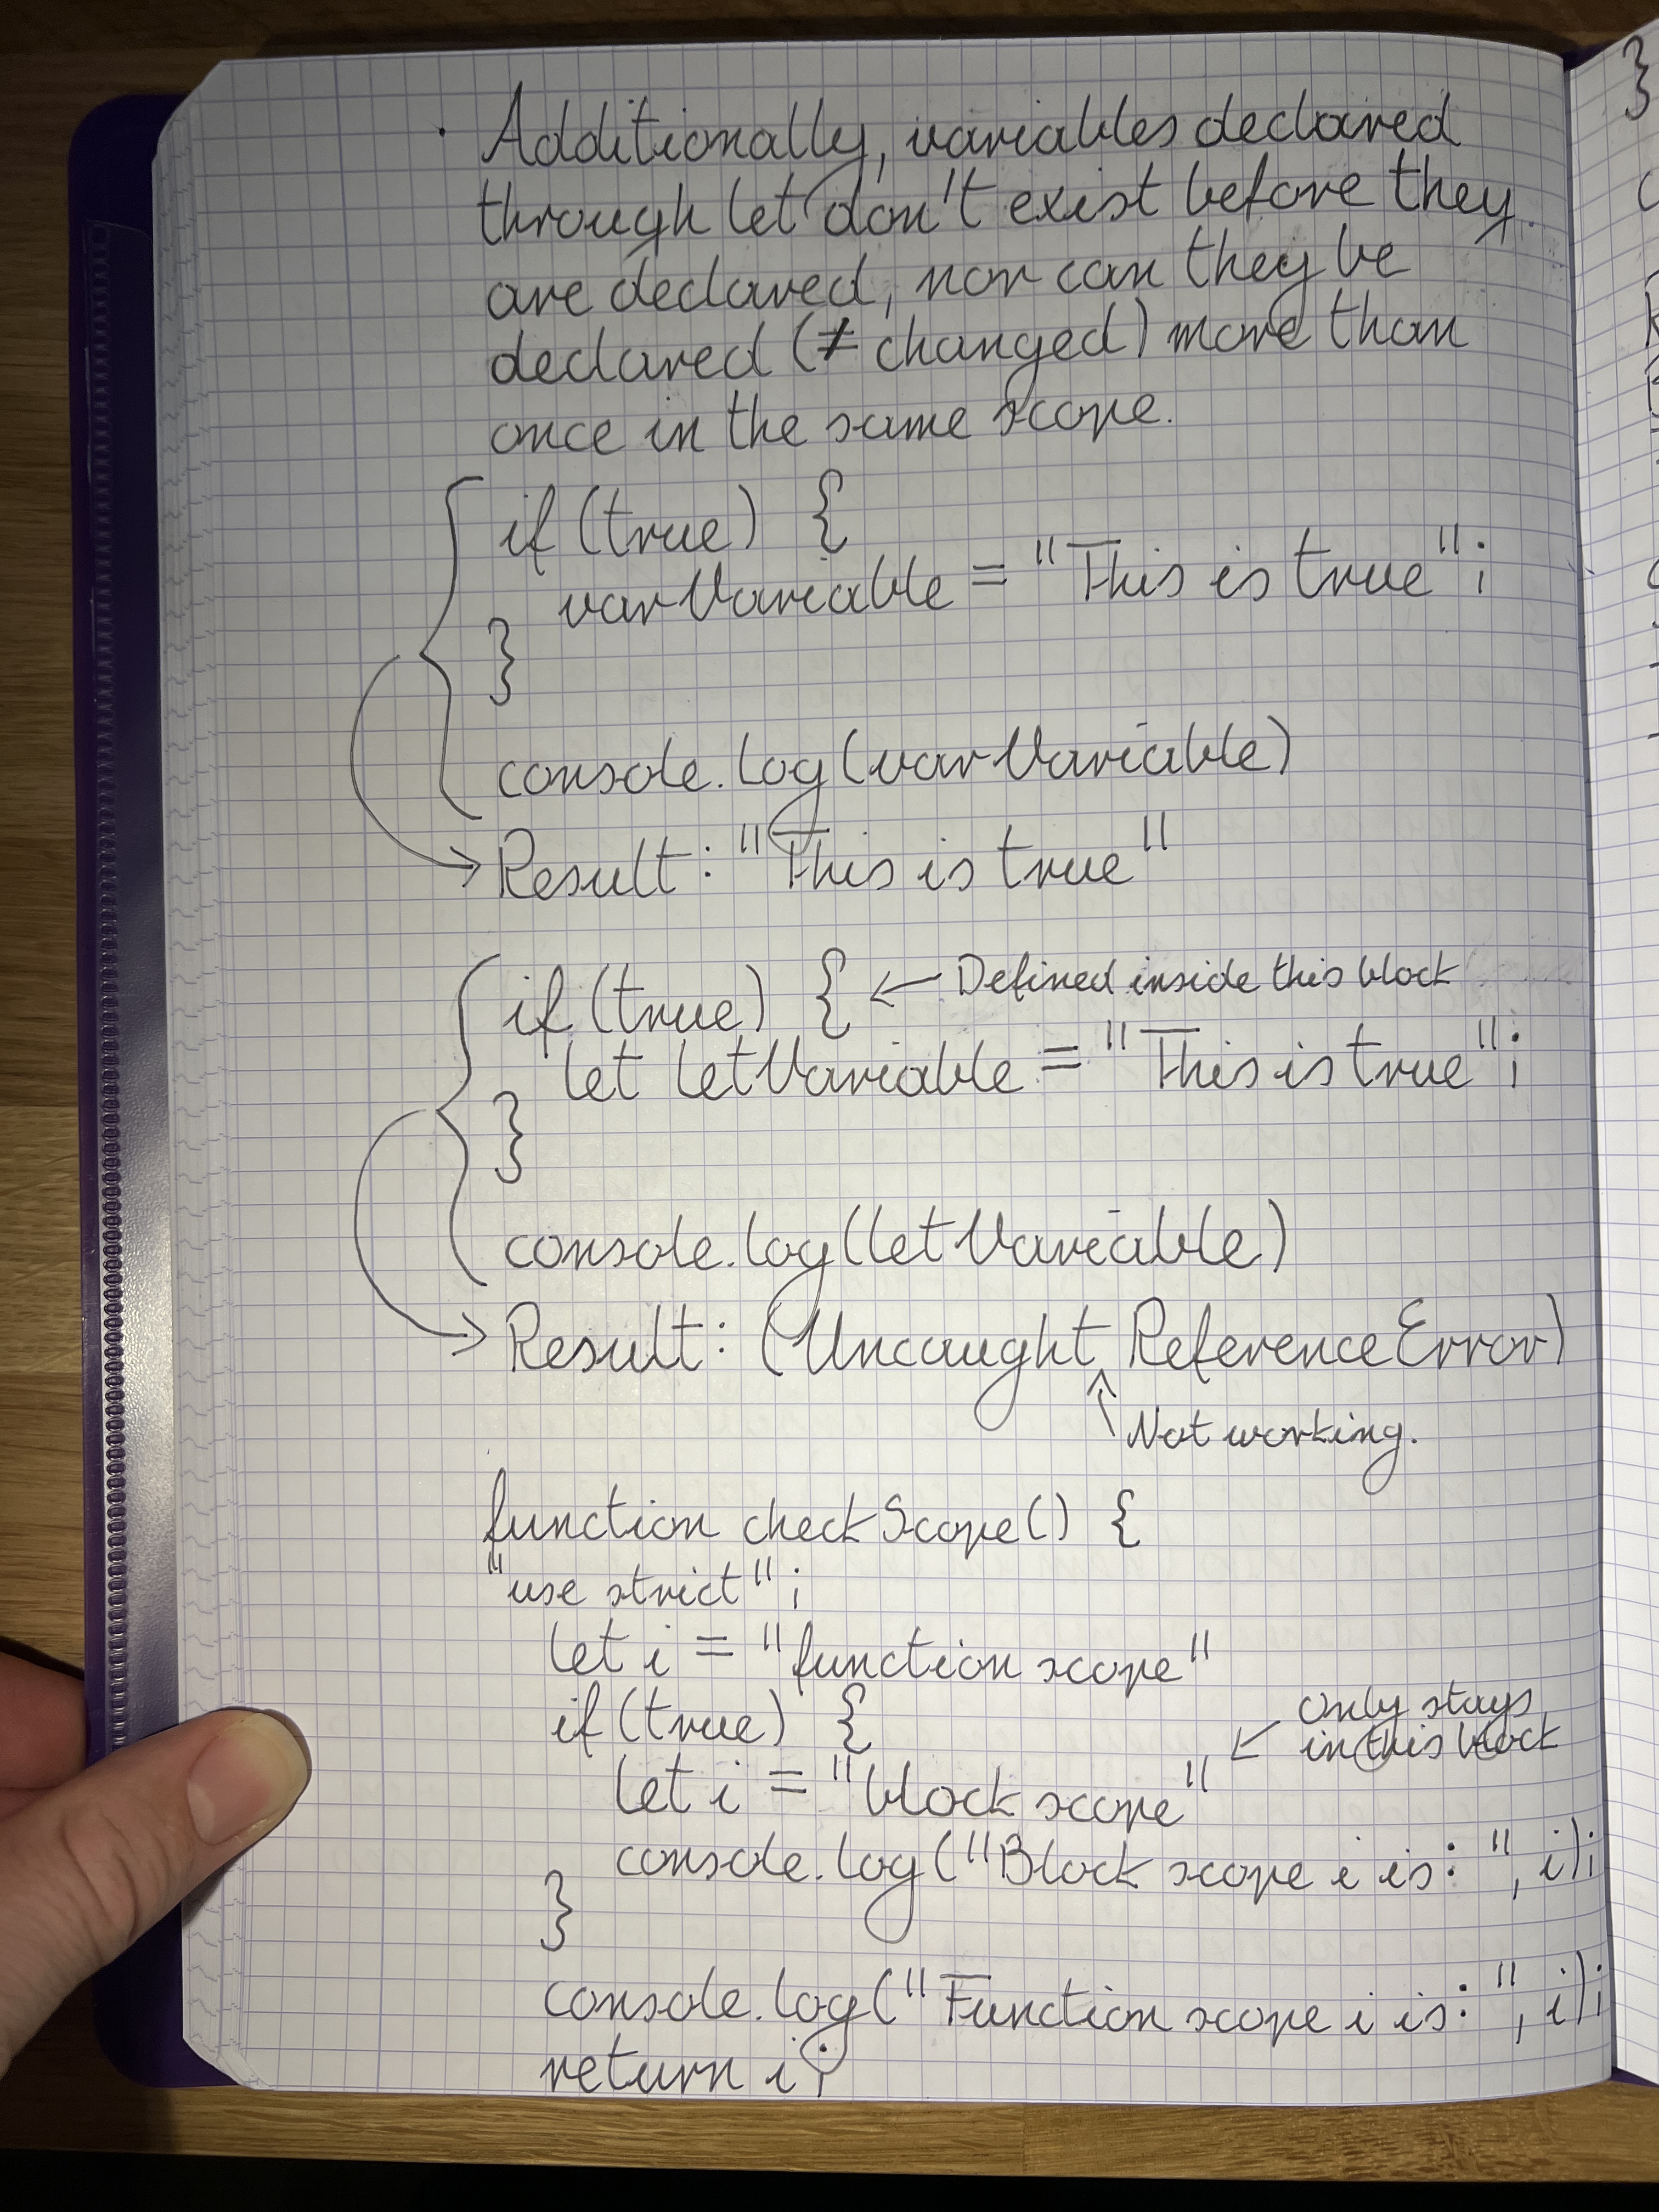 • Additionally, variables declared
through let don't exist before they
are declared, nor can they be
declared (≠ changed) more than
once in the same scope.
if (true) {
varVariable = "This is true";
}
console.log(varVariable)
Result: "This is true"
if (true) { ← Defined inside this block
let letVariable = "This is true";
}
console.log(letVariable)
Result: (Uncaught ReferenceError)
Not working.
function checkScope() {
"use strict";
let i = "function scope"
if (true) {
only stays
in this block
let i = "block scope"
console.log("Block scope i is: ", i);
}
console.log("Function scope i is: ", i);
return i;
}